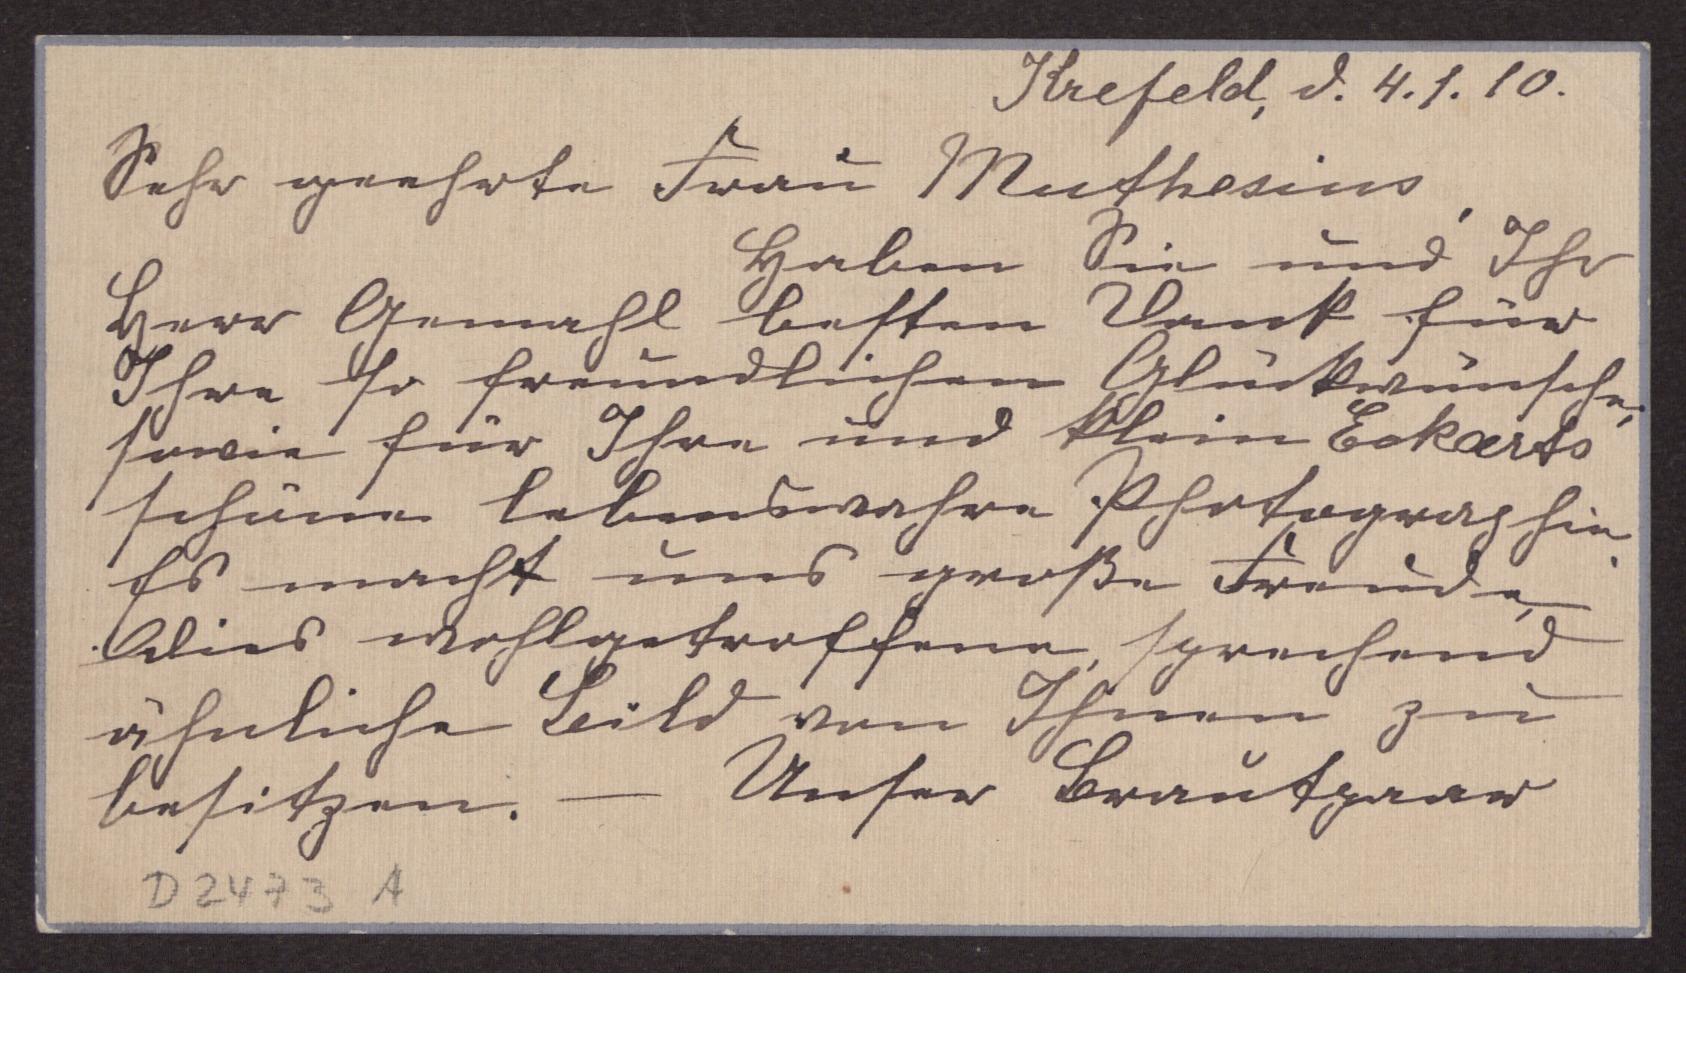 Krefeld, d. 4.1.10.
Sehr geehrte Frau Muthesius,
Haben Sie und Ihr
Herr Gemahl besten Dank für
Ihre so freundlichen Glückwünsche,
sowie für Ihre und klein Eckarts
schöne lebenswahre Photographie.
Es macht uns große Freude,
dies wohlgetroffene, sprechend
ähnliche Bild von Ihnen zu
besitzen. — Unser Brautpaar
D 2473 A